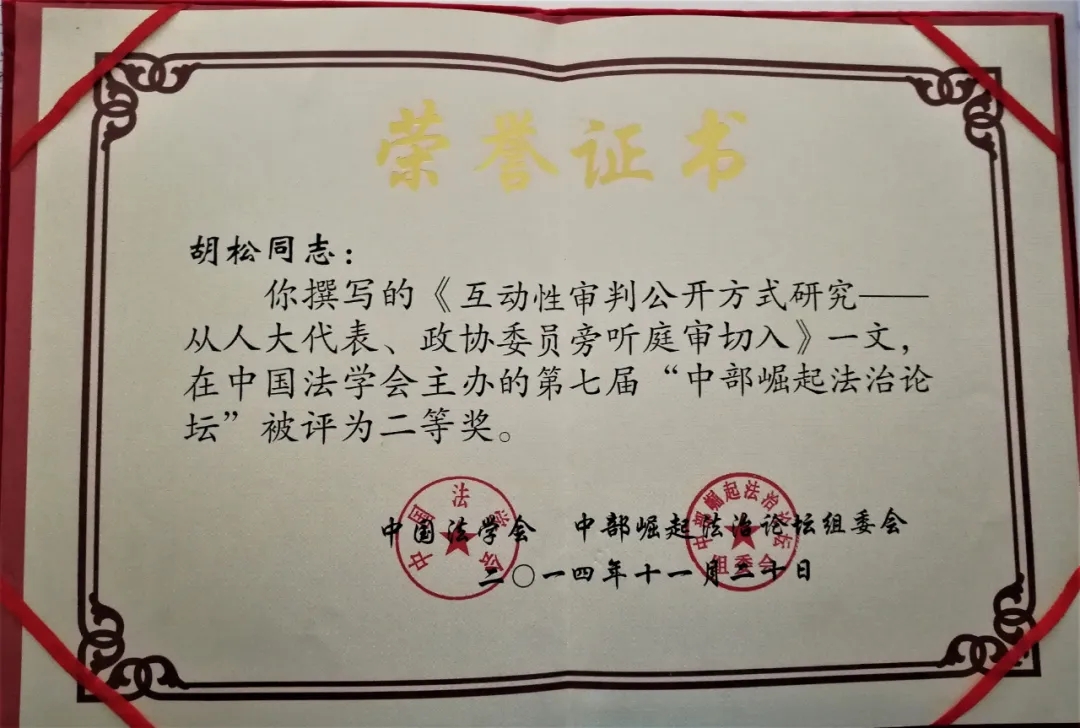 荣誉证书
胡松同志：
你撰写的《互动性审判公开方式研究——
从人大代表、政协委员旁听庭审切入》一文，
在中国法学会主办的第七届“中部崛起法治论
坛”被评为二等奖。
中国法学会 中部崛起法治论坛组委会
二〇一四年十一月二十日
中国法学会
中部崛起法治论坛
组委会